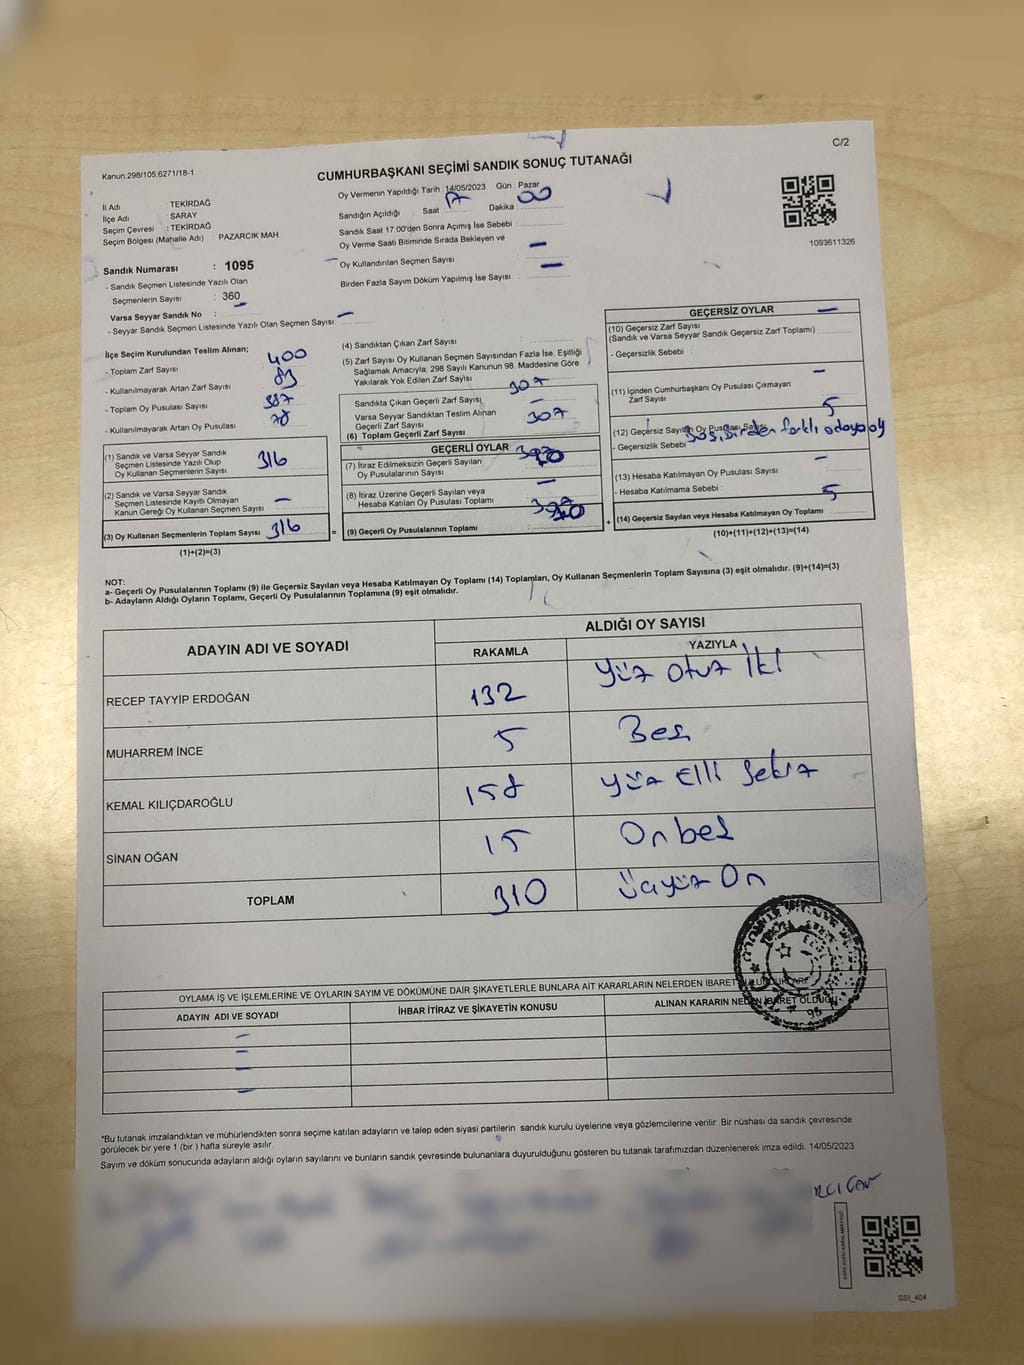 C/2
Kanun.298/105,6271/18-1
CUMHURBAŞKANI SEÇİMİ SANDIK SONUÇ TUTANAĞI
Oy Vermenin Yapıldığı Tarih : 14/05/2023 Gün : Pazar
İl Adı TEKİRDAĞ
İlçe Adı SARAY
Seçim Çevresi : TEKİRDAĞ
Seçim Bölgesi (Mahalle Adı) PAZARCIK MAH.
Sandığın Açıldığı Saat 17 Dakika 00
Sandık Saat 17:00'den Sonra Açımış İse Sebebi :
Oy Verme Saati Bitiminde Sırada Bekleyen ve
Oy Kullandırılan Seçmen Sayısı –
Birden Fazla Sayım Döküm Yapılmış İse Sayısı : –
1093611326
Sandık Numarası : 1095
- Sandık Seçmen Listesinde Yazılı Olan
Seçmenlerin Sayısı : 360
Varsa Seyyar Sandık No : –
- Seyyar Sandık Seçmen Listesinde Yazılı Olan Seçmen Sayısı: –
İlçe Seçim Kurulundan Teslim Alınan;
- Toplam Zarf Sayısı 400
- Kullanılmayarak Artan Zarf Sayısı 83
- Toplam Oy Pusulası Sayısı 387
- Kullanılmayarak Artan Oy Pusulası 70
(1) Sandık ve Varsa Seyyar Sandık
Seçmen Listesinde Yazılı Olup
Oy Kullanan Seçmenlerin Sayısı 316
(2) Sandık ve Varsa Seyyar Sandık
Seçmen Listesinde Kayıtlı Olmayan
Kanun Gereği Oy Kullanan Seçmen Sayısı –
(3) Oy Kullanan Seçmenlerin Toplam Sayısı 316
(1)+(2)=(3)
(4) Sandıktan Çıkan Zarf Sayısı :
(5) Zarf Sayısı Oy Kullanan Seçmen Sayısından Fazla İse, Eşitliği
Sağlamak Amacıyla; 298 Sayılı Kanunun 98. Maddesine Göre
Yakılarak Yok Edilen Zarf Sayısı
Sandıkta Çıkan Geçerli Zarf Sayısı 307
Varsa Seyyar Sandıktan Teslim Alınan
Geçerli Zarf Sayısı –
(6) Toplam Geçerli Zarf Sayısı 307
GEÇERLİ OYLAR
(7) İtiraz Edilmeksizin Geçerli Sayılan
Oy Pusulalarının Sayısı
(8) İtiraz Üzerine Geçerli Sayılan veya
Hesaba Katılan Oy Pusulası Toplamı –
(9) Geçerli Oy Pusulalarının Toplamı
GEÇERSİZ OYLAR
(10) Geçersiz Zarf Sayısı
(Sandık ve Varsa Seyyar Sandık Geçersiz Zarf Toplamı) –
- Geçersizlik Sebebi :
(11) İçinden Cumhurbaşkanı Oy Pusulası Çıkmayan
Zarf Sayısı –
(12) Geçersiz Sayılan Oy Pusulası Sayısı 5
- Geçersizlik Sebebi Boş, birden farklı adaya oy
(13) Hesaba Katılmayan Oy Pusulası Sayısı –
- Hesaba Katılmama Sebebi :
(14) Geçersiz Sayılan veya Hesaba Katılmayan Oy Toplamı 5
(10)+(11)+(12)+(13)=(14)
NOT:
a- Geçerli Oy Pusulalarının Toplamı (9) ile Geçersiz Sayılan veya Hesaba Katılmayan Oy Toplamı (14) Toplamları, Oy Kullanan Seçmenlerin Toplam Sayısına (3) eşit olmalıdır. (9)+(14)=(3)
b- Adayların Aldığı Oyların Toplamı, Geçerli Oy Pusulalarının Toplamına (9) eşit olmalıdır.
ADAYIN ADI VE SOYADI ALDIĞI OY SAYISI
RAKAMLA YAZIYLA
RECEP TAYYİP ERDOĞAN 132 Yüz Otuz İki
MUHARREM İNCE 5 Beş
KEMAL KILIÇDAROĞLU 158 Yüz Elli Sekiz
SİNAN OĞAN 15 On beş
TOPLAM 310 Üçyüz On
OYLAMA İŞ VE İŞLEMLERİNE VE OYLARIN SAYIM VE DÖKÜMÜNE DAİR ŞİKAYETLERLE BUNLARA AİT KARARLARIN NELERDEN İBARET BULUNDUKLARI
ADAYIN ADI VE SOYADI İHBAR İTİRAZ VE ŞİKAYETİN KONUSU ALINAN KARARIN NEDEN İBARET OLDUĞU
–
–
–
–
*Bu tutanak imzalandıktan ve mühürlendikten sonra seçime katılan adayların ve talep eden siyasi partilerin sandık kurulu üyelerine veya gözlemcilerine verilir. Bir nüshası da sandık çevresinde
görülecek bir yere 1 (bir ) hafta süreyle asılır.
Sayım ve döküm sonucunda adayların aldığı oyların sayılarını ve bunların sandık çevresinde bulunanlara duyurulduğunu gösteren bu tutanak tarafımızdan düzenlenerek imza edildi. 14/05/2023
SSI_404